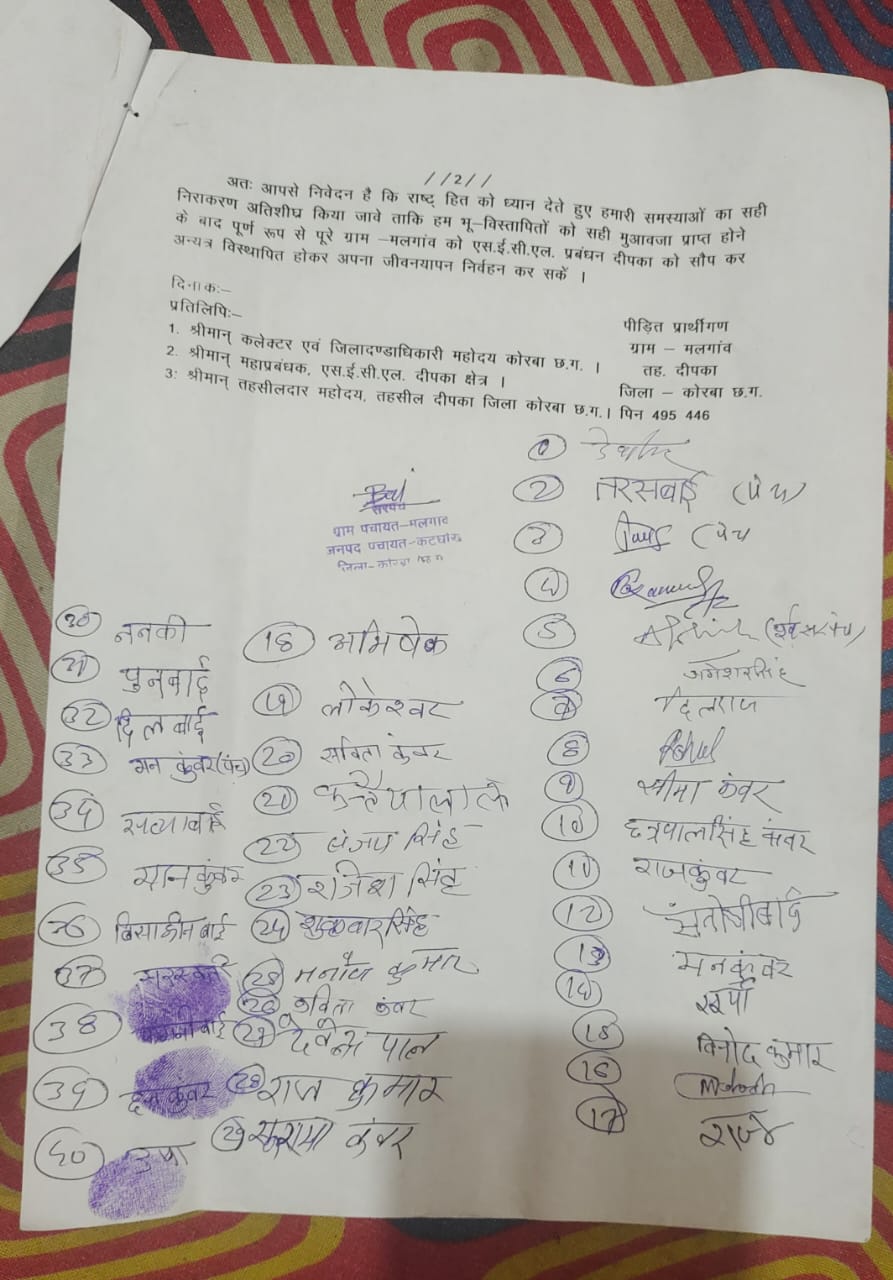 //2//
अतः आपसे निवेदन है कि राष्ट् हित को ध्यान देते हुए हमारी समस्याओं का सही
निराकरण अतिशीघ्र किया जावे ताकि हम भू–विस्तापितों को सही मुआवजा प्राप्त होने
के बाद पूर्ण रूप से पूरे ग्राम –मलगांव को एस.ई.सी.एल. प्रबंधन दीपका को सौप कर
अन्यत्र विस्थापित होकर अपना जीवनयापन निर्वहन कर सकें ।
दिनाकः–
प्रतिलिपिः–
1. श्रीमान् कलेक्टर एवं जिलादण्डाधिकारी महोदय कोरबा छ.ग. ।
2. श्रीमान् महाप्रबंधक, एस.ई.सी.एल. दीपका क्षेत्र ।
3: श्रीमान् तहसीलदार महोदय, तहसील दीपका जिला कोरबा छ.ग.।
पीड़ित प्रार्थीगण
ग्राम – मलगांव
तह. दीपका
जिला – कोरबा छ.ग.
पिन 495 446
सरपंच
ग्राम पंचायत–मलगांव
जनपद पंचायत–कटघोरा
जिला–कोरबा
1
2 तरसबाई (पंच)
3 (पंच
4
5
6
7 दिलराज
8
9 सीमा कंवर
10 छत्रपालसिंह कंवर
11 राजकुंवर
12 संतोषीबाई
13 मनकुंवर
14
15 विनोद कुमार
16
17
18 अभिषेक
19 लोकेश्वर
20 सविता कंवर
21 कन्हैयालाल
22 सिंह
23 सिंह
24 शुक्रवारसिंह
25 मनोज कुमार
26 कविता कंवर
27 पाल
28 राज कुमार
29 कंवर
30 ननकी
31 पुनबाई
32 दिलबाई
33 मन कुंवर(पंच)
34 सत्याबाई
35 मानकुंवर
36 बाई
37
38
39 कुंवर
40